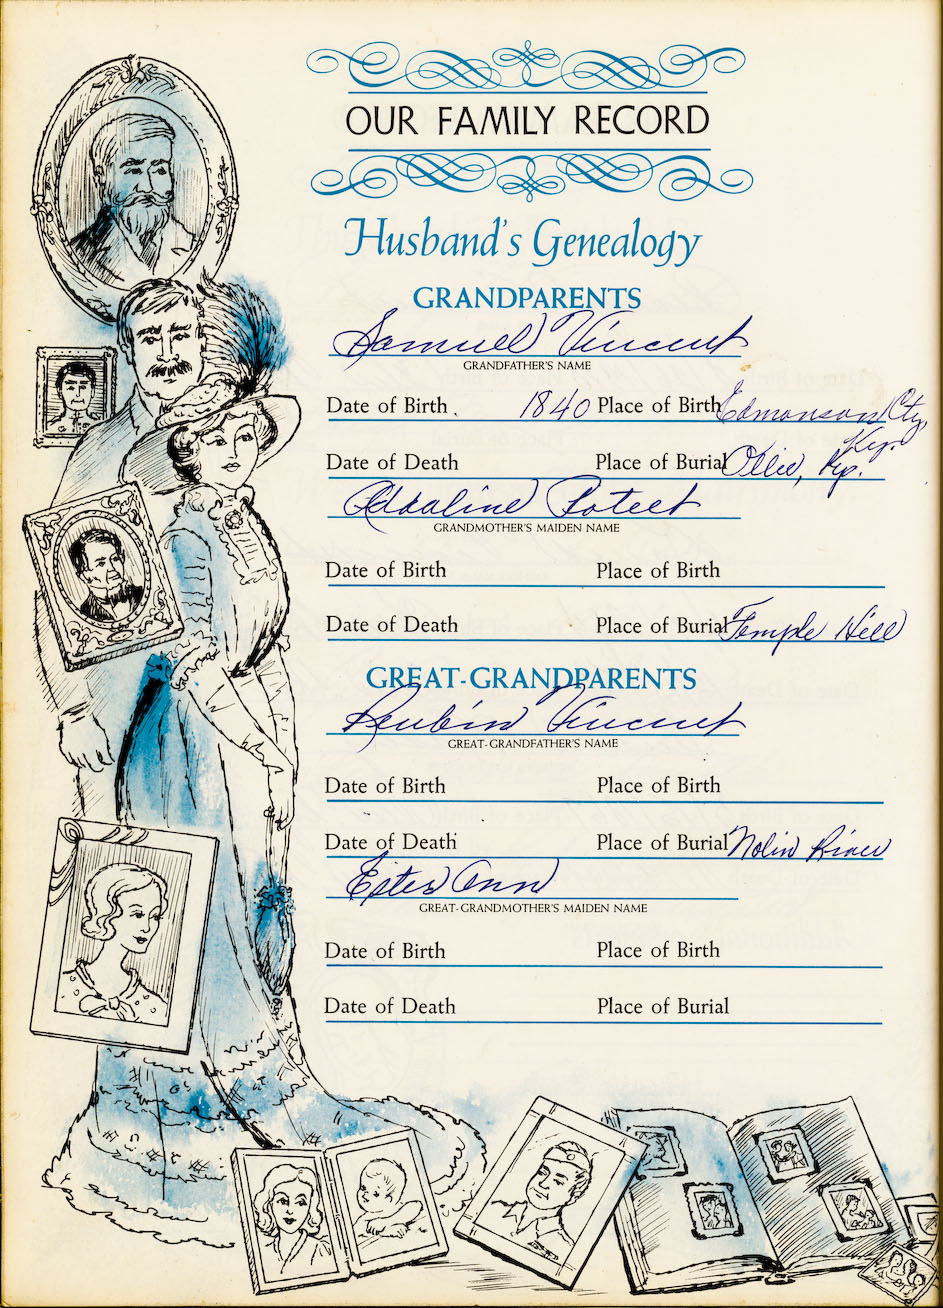 OUR FAMILY RECORD
Husband's Genealogy
GRANDPARENTS
Samuel Vincent
GRANDFATHER'S NAME
Date of Birth 1840 Place of Birth Edmonson Cty, Ky.
Date of Death Place of Burial Ollie, Ky.
Addaline Poteet
GRANDMOTHER'S MAIDEN NAME
Date of Birth Place of Birth
Date of Death Place of Burial Temple Hill
GREAT-GRANDPARENTS
Reubin Vincent
GREAT-GRANDFATHER'S NAME
Date of Birth Place of Birth
Date of Death Place of Burial Nolin River
Ester Ann
GREAT-GRANDMOTHER'S MAIDEN NAME
Date of Birth Place of Birth
Date of Death Place of Burial